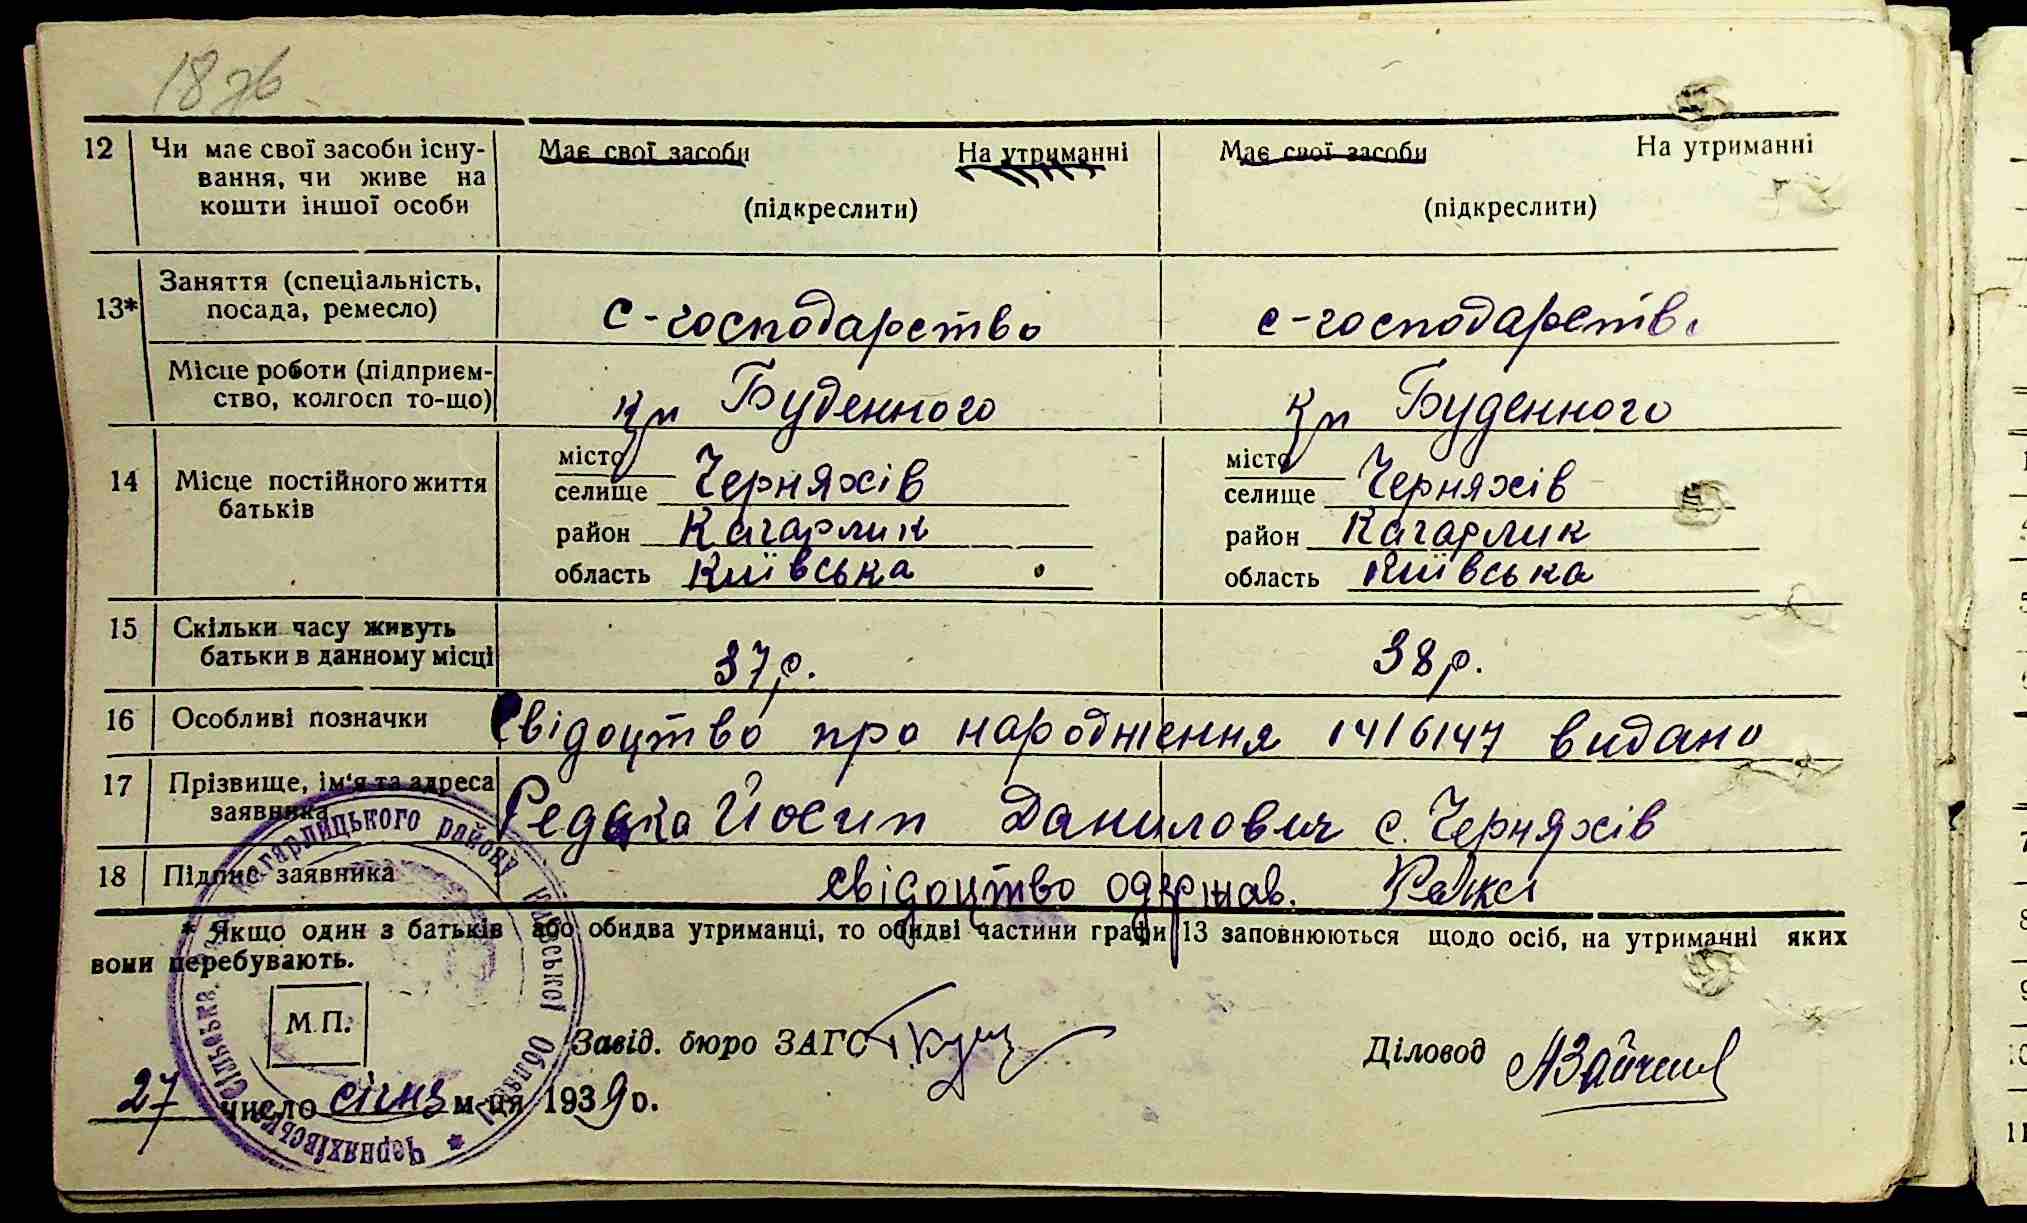 18 зв
12 Чи має свої засоби існу- Має свої засоби На утриманні Має свої засоби На утриманні
вання, чи живе на
кошти іншої особи (підкреслити) (підкреслити)
Заняття (спеціальність,
13* посада, ремесло) с-господарство с-господарств
Місце роботи (підприєм-
ство, колгосп то-що) Буденного Буденного
місто місто
14 Місце постійного життя селище Черняхів селище Черняхів
батьків район Кагарлик район Кагарлик
область Київська область Київська
15 Скільки часу живуть
батьки в данному місці 37 р. 38 р.
16 Особливі позначки Свідоцтво про народження 1416147 видано
17 Прізвище, ім'я та адреса
заявника Редька Йосип Данилович с. Черняхів
18 Підпис заявника свідоцтво одержав.
* Якщо один з батьків або обидва утриманці, то обидві частини графи 13 заповнюються щодо осіб, на утриманні яких
вони перебувають.
М.П.
Завід. бюро ЗАГС Діловод
27 число січня м-ця 1939 р.
Черняхівська сільська Кагарлицького району Київської Області